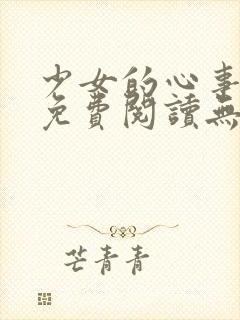 少女的心事
免費閱讀無
芒青青